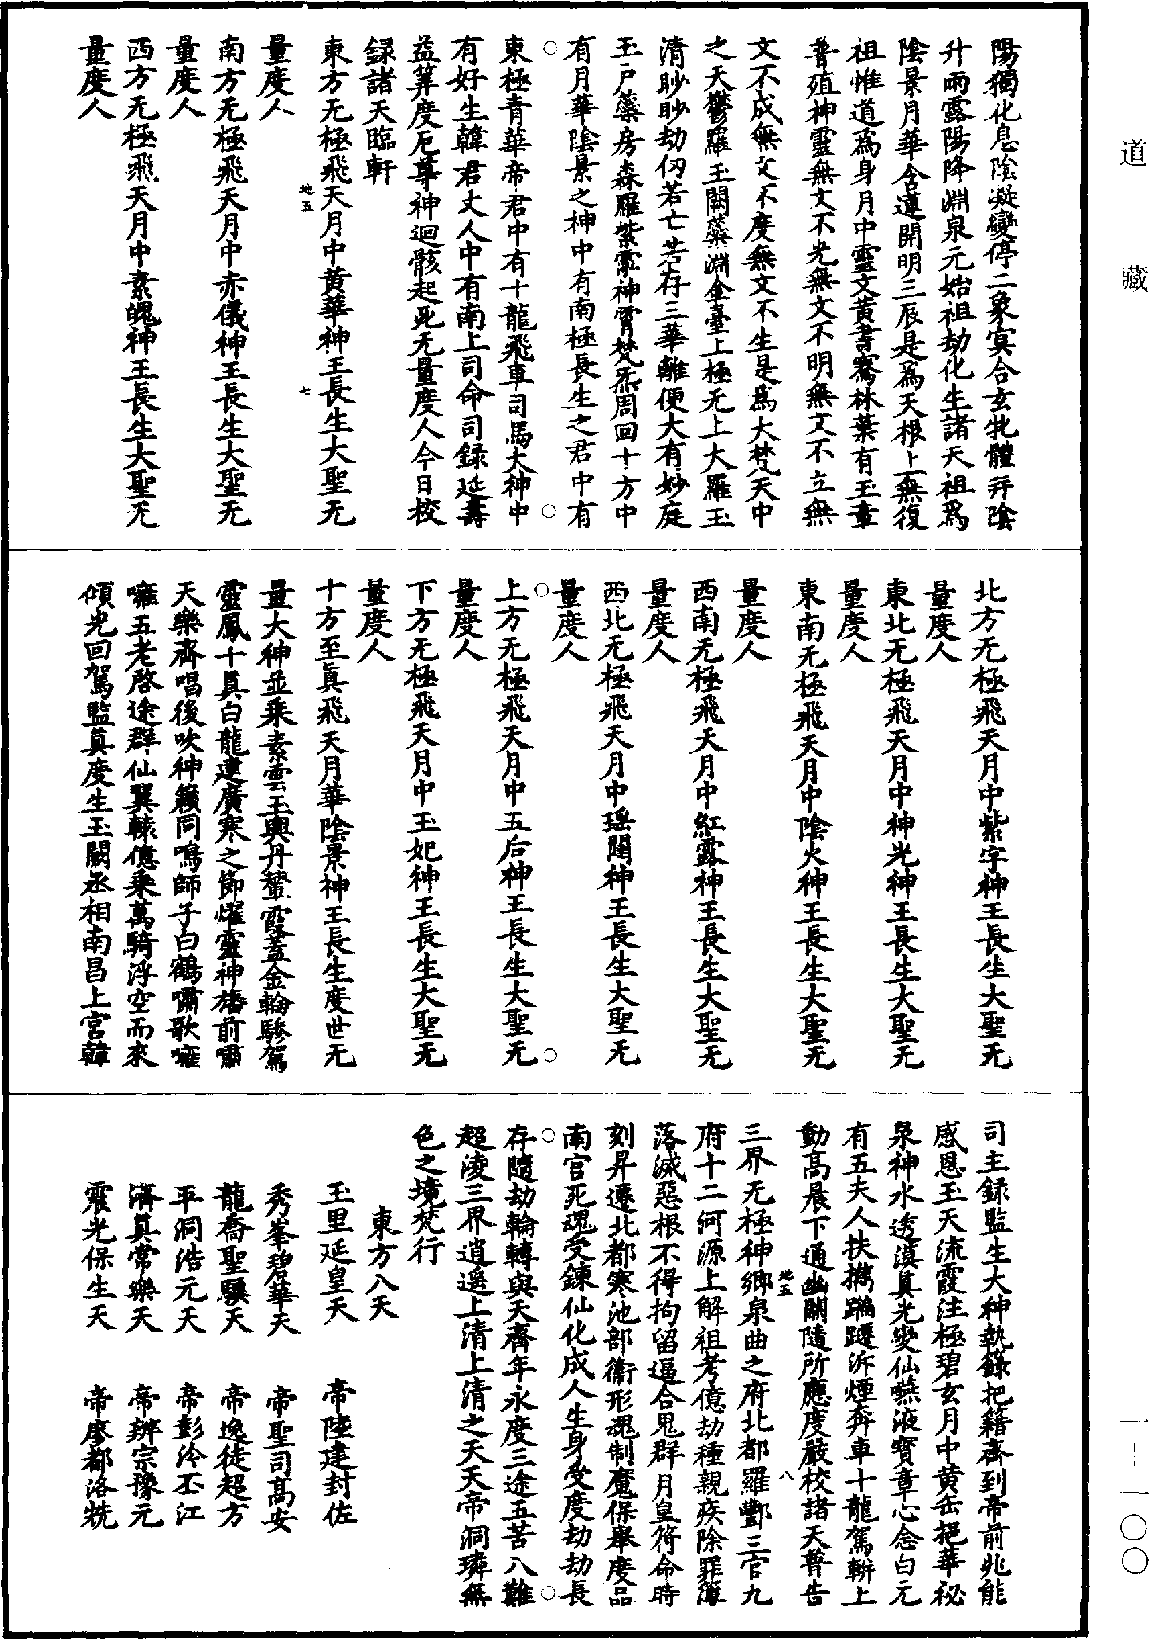 道藏
一—一〇〇
陽獨化息陰凝變停二象㝠合玄牝體并陰
升雨露陽降淵泉元始祖劫化生諸天祖爲
陰景月華含運開明三辰是爲天根上無復
祖惟道爲身月中靈文黃書騫林葉有玉章
普殖神靈無文不光無文不明無文不立無
文不成無文不度無文不生是爲大梵天中
之天鬱羅玉闕蘂淵金臺上極无上大羅玉
清眇眇劫仞若亡若存三華離便大有妙庭
玉户藥房森羅紫霭神霄梵炁周回十方中
有月華陰景之神中有南極長生之君中有
東極青華帝君中有十龍飛車司馬大神中
有好生韓君丈人中有南上司命司録延壽
益筭度厄尊神迴骸起死无量度人今日校
録諸天臨軒
東方无極飛天月中黃華神王長生大聖无
量度人
地五
七
南方无極飛天月中赤儀神王長生大聖无
量度人
西方无極飛天月中素魄神王長生大聖无
量度人
北方无極飛天月中紫字神王長生大聖无
量度人
東北无極飛天月中神光神王長生大聖无
量度人
東南无極飛天月中陰火神王長生大聖无
量度人
西南无極飛天月中紅露神王長生大聖无
量度人
西北无極飛天月中瑶闕神王長生大聖无
量度人
上方无極飛天月中五后神王長生大聖无
量度人
下方无極飛天月中玉妃神王長生大聖无
量度人
十方至真飛天月華陰景神王長生度世无
量大神並乘素雲玉輿丹鸞霞蓋金輪驂駕
靈鳳十真白龍建廣寒之節燿靈神旛前嘯
天樂齊唱後吹神籟同鳴師子白鶴嘯歌嗈
嗈五老啓途群仙翼轅億乘萬騎浮空而來
傾光回駕監真度生玉闕丞相南昌上宮韓
司主録監生大神執籙把籍齊到帝前兆能
感恩玉天流霞注極碧玄月中黃岳挹華祕
泉神水透漠真光變仙嚥液寶章心念白元
有五夫人扶擕躡躔泝煙奔車十龍駕輧上
動高晨下通幽關隨所應度嚴校諸天普告
地五
八
三界无極神鄉泉曲之府北都羅酆三官九
府十二河源上解祖考億劫種親疾除罪簿
落滅惡根不得拘留逼合鬼群月皇符命時
刻昇遷北都寒池部衞形魂制魔保舉度品
南宫死魂受鍊仙化成人生身受度劫劫長
存隨劫輪轉與天齊年永度三途五苦八難
超淩三界逍遥上清上清之天天帝洞璘無
色之境梵行
東方八天
玉里延皇天 帝陸建封佐
秀峯碧華天 帝聖司髙安
龍喬聖驥天 帝逸徒超方
平洞浩元天 帝彭泠丕江
濟真常樂天 帝辨宗豫元
震光保生天 帝廖都洛㷌